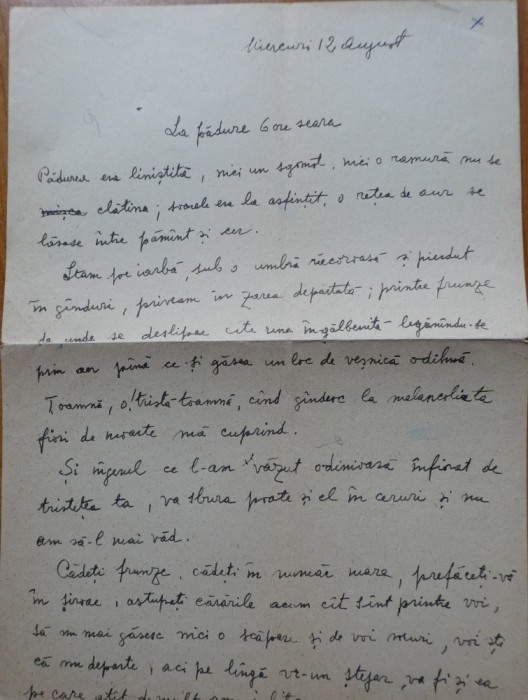 Miercuri 12 August
x
La pădure 6 ore seara
Pădurea era liniștită, nici un sgomot, nici o ramură nu se
mișca clătina; soarele era la asfințit, o rețea de aur se
lăsase între pămînt și cer.
Stam pe iarbă, sub o umbră răcoroasă și pierdut
în gînduri, priveam în zarea depărtată; printre frunze
de unde se deslipea cîte una îngălbenită legănîndu-se
prin aer pînă ce-și găsea un loc de veșnică odihnă.
Toamnă, o, tristă toamnă, cînd gîndesc la melancolia ta
fiori de moarte mă cuprind.
Și îngerul ce l-am văzut odinioară înfiorat de
tristețea ta, va sbura poate și el în ceruri și nu
am să-l mai văd.
Cădeți frunze, cădeți în număr mare, prefăceți-vă
în șiroae, astupați cărările acum cît sînt printre voi,
să nu mai găsesc nici o scăpare și de voi muri, voi ști
că nu departe, aci pe lîngă vr-un stejar va fi și ea
pe care atît de mult am